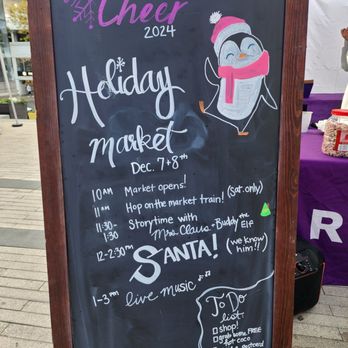 Cheer
2024
Holiday
market
Dec. 7+8th
10AM Market opens!
11AM Hop on the market train! (sat. only)
11:30-1:30 Storytime with Mrs. Claus + Buddy the Elf
12-2:30pm SANTA! (we know him!!)
1-3pm live music
To Do
list
shop!
grab some FREE
hot coco
R